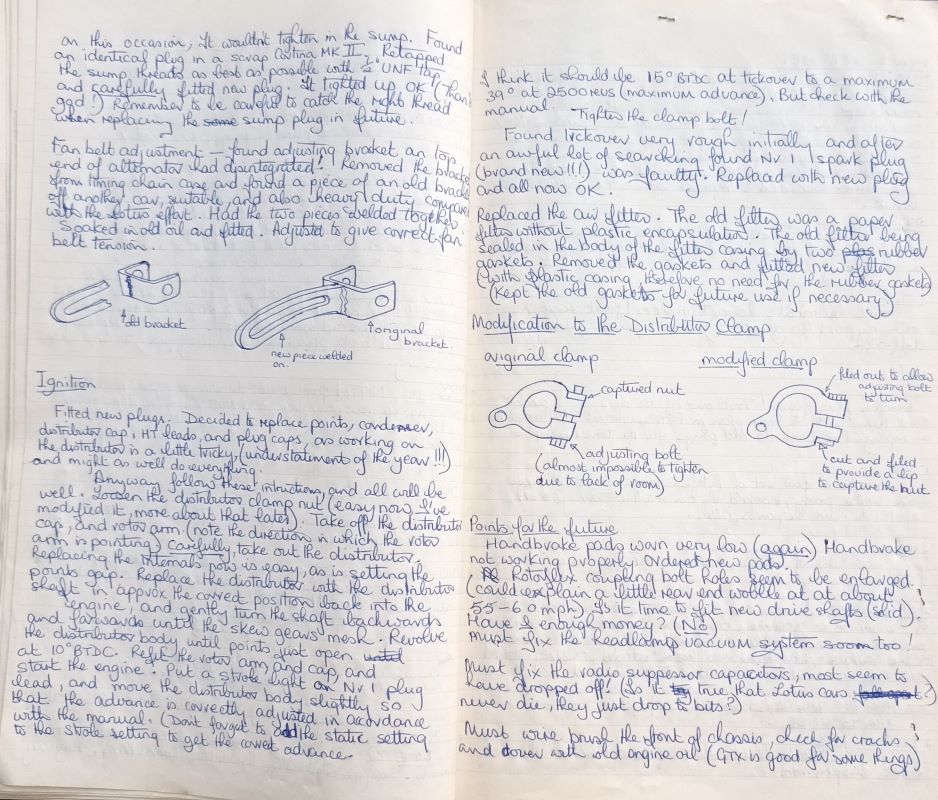 on this occasion, It wouldn't tighten in the sump. Found
an identical plug in a scrap Cortina MK II. Retapped
the sump threads as best as possible with ½" UNF tap,
and carefully fitted new plug. It tighted up OK (Thank
god!) Remember to be careful to catch the right thread
when replacing the some sump plug in future.
Fan belt adjustment – found adjusting bracket on top
end of alternator had disintegrated! Removed the bracket
from timing chain case and found a piece of an old bracket
off another car, suitable, and also heavy duty compared
with the Lotus effort. Had the two pieces welded together.
Soaked in old oil and fitted. Adjusted to give correct fan
belt tension.
old bracket
original
bracket.
new piece welded
on.
Ignition
Fitted new plugs. Decided to replace points, condenser,
distributor cap, HT leads, and plug caps, as working on
the distributor is a little tricky, (understatement of the year!!!)
and might as well do everything.
Anyway follow these intructions, and all will be
well. Loosen the distributor clamp nut (easy now I've
modified it, more about that later). Take off the distributor
cap, and rotor arm (note the direction in which the rotor
arm is pointing) Carefully, take out the distributor.
Replacing the internals now is easy, as is setting the
points gap. Replace the distributor with the distributor
shaft in approx the correct position back into the
engine, and gently turn the shaft backwards
and forwards until the skew gears mesh. Revolve
the distributor body until points just open
at 10° BTDC. Refit the rotor arm, and cap, and
start the engine. Put a strobe light on Nr 1 plug
lead, and move the distributor body slightly so
that the advance is correctly adjusted in accordance
with the manual. (Don't forget to add the static setting
to the strobe setting to get the correct advance.
I think it should be 15° BTDC at tickover to a maximum
39° at 2500 revs (maximum advance). But check with the
manual. Tighten the clamp bolt!
Found tickover very rough initially and after
an awful lot of searching found Nr 1 spark plug
(brand new!!!) was faulty. Replaced with new plug
and all now OK.
Replaced the air filter. The old filter was a paper
filter without plastic encapsulation. The old filter being
sealed in the body of the filter casing by two rubber
gaskets. Removed the gaskets and fitted new filter
(with plastic casing therefore no need for the rubber gaskets)
(kept the old gaskets for future use if necessary)
Modification to the Distributor Clamp
original clamp
modified clamp
captured nut
adjusting bolt
(almost impossible to tighten
due to lack of room)
filed out to allow
adjusting bolt
to turn
cut and filed
to provide a lip
to capture the nut
Points for the future
Handbrake pads worn very low (again) Handbrake
not working properly. Ordered new pads.
Rotoflex coupling bolt holes seem to be enlarged
(could explain a little rear end wobble at at about
55-60 mph). Is it time to fit new drive shafts (solid)?
Have I enough money? (No)
Must fix the headlamp vacuum system soom too!
Must fix the radio suppessor capacitors, most seem to
have dropped off! (Is it True, that Lotus cars
never die, they just drop to bits?)
Must wire brush the front of chassis, check for cracks?
and cover with old engine oil (GTX is good for some things)